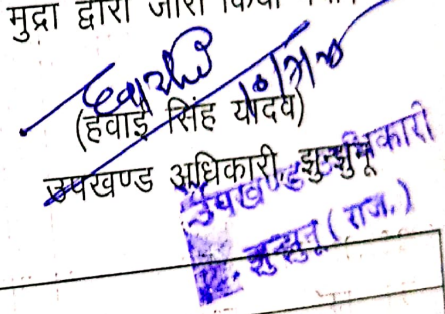 मुद्रा द्वारा जारी किया
(हवाई सिंह यादव)
उपखण्ड अधिकारी, झुन्झुनू
उपखण्ड अधिकारी
झुन्झुनू (राज.)